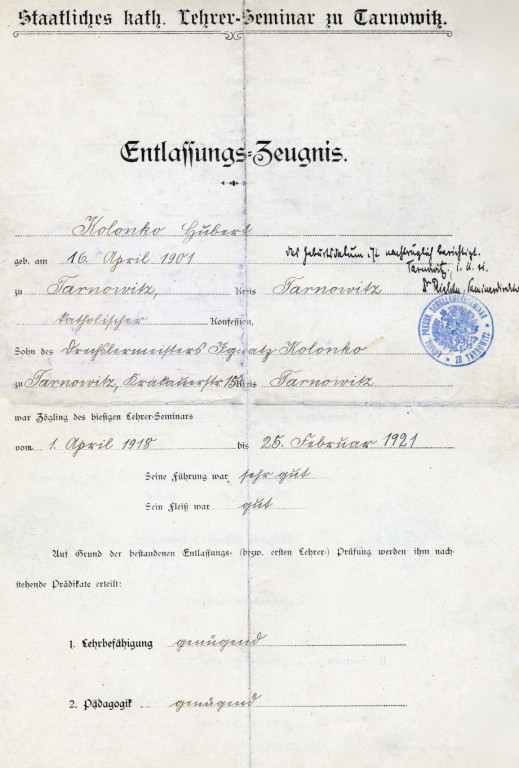 Staatliches kath. Lehrer-Seminar zu Tarnowitz.
Entlassungs-Zeugnis.
Kolonko Hubert
geb. am 16. April 1901
das Geburtsdatum ist nachträglich berichtigt.
Tarnowitz,
Dr Seminardirektor
zu Tarnowitz, Kreis Tarnowitz
katholischer Konfession,
Sohn des Drechslermeisters Ignatz Kolonko
zu Tarnowitz, Krakauerstr Kreis Tarnowitz
war Zögling des hiesigen Lehrer-Seminars
vom 1. April 1918 bis 25. Februar 1921
Seine Führung war sehr gut
Sein Fleiß war gut
Auf Grund der bestandenen Entlassungs- (bezw. ersten Lehrer-) Prüfung werden ihm nach-
stehende Prädikate erteilt:
1. Lehrbefähigung genügend
2. Pädagogik genügend